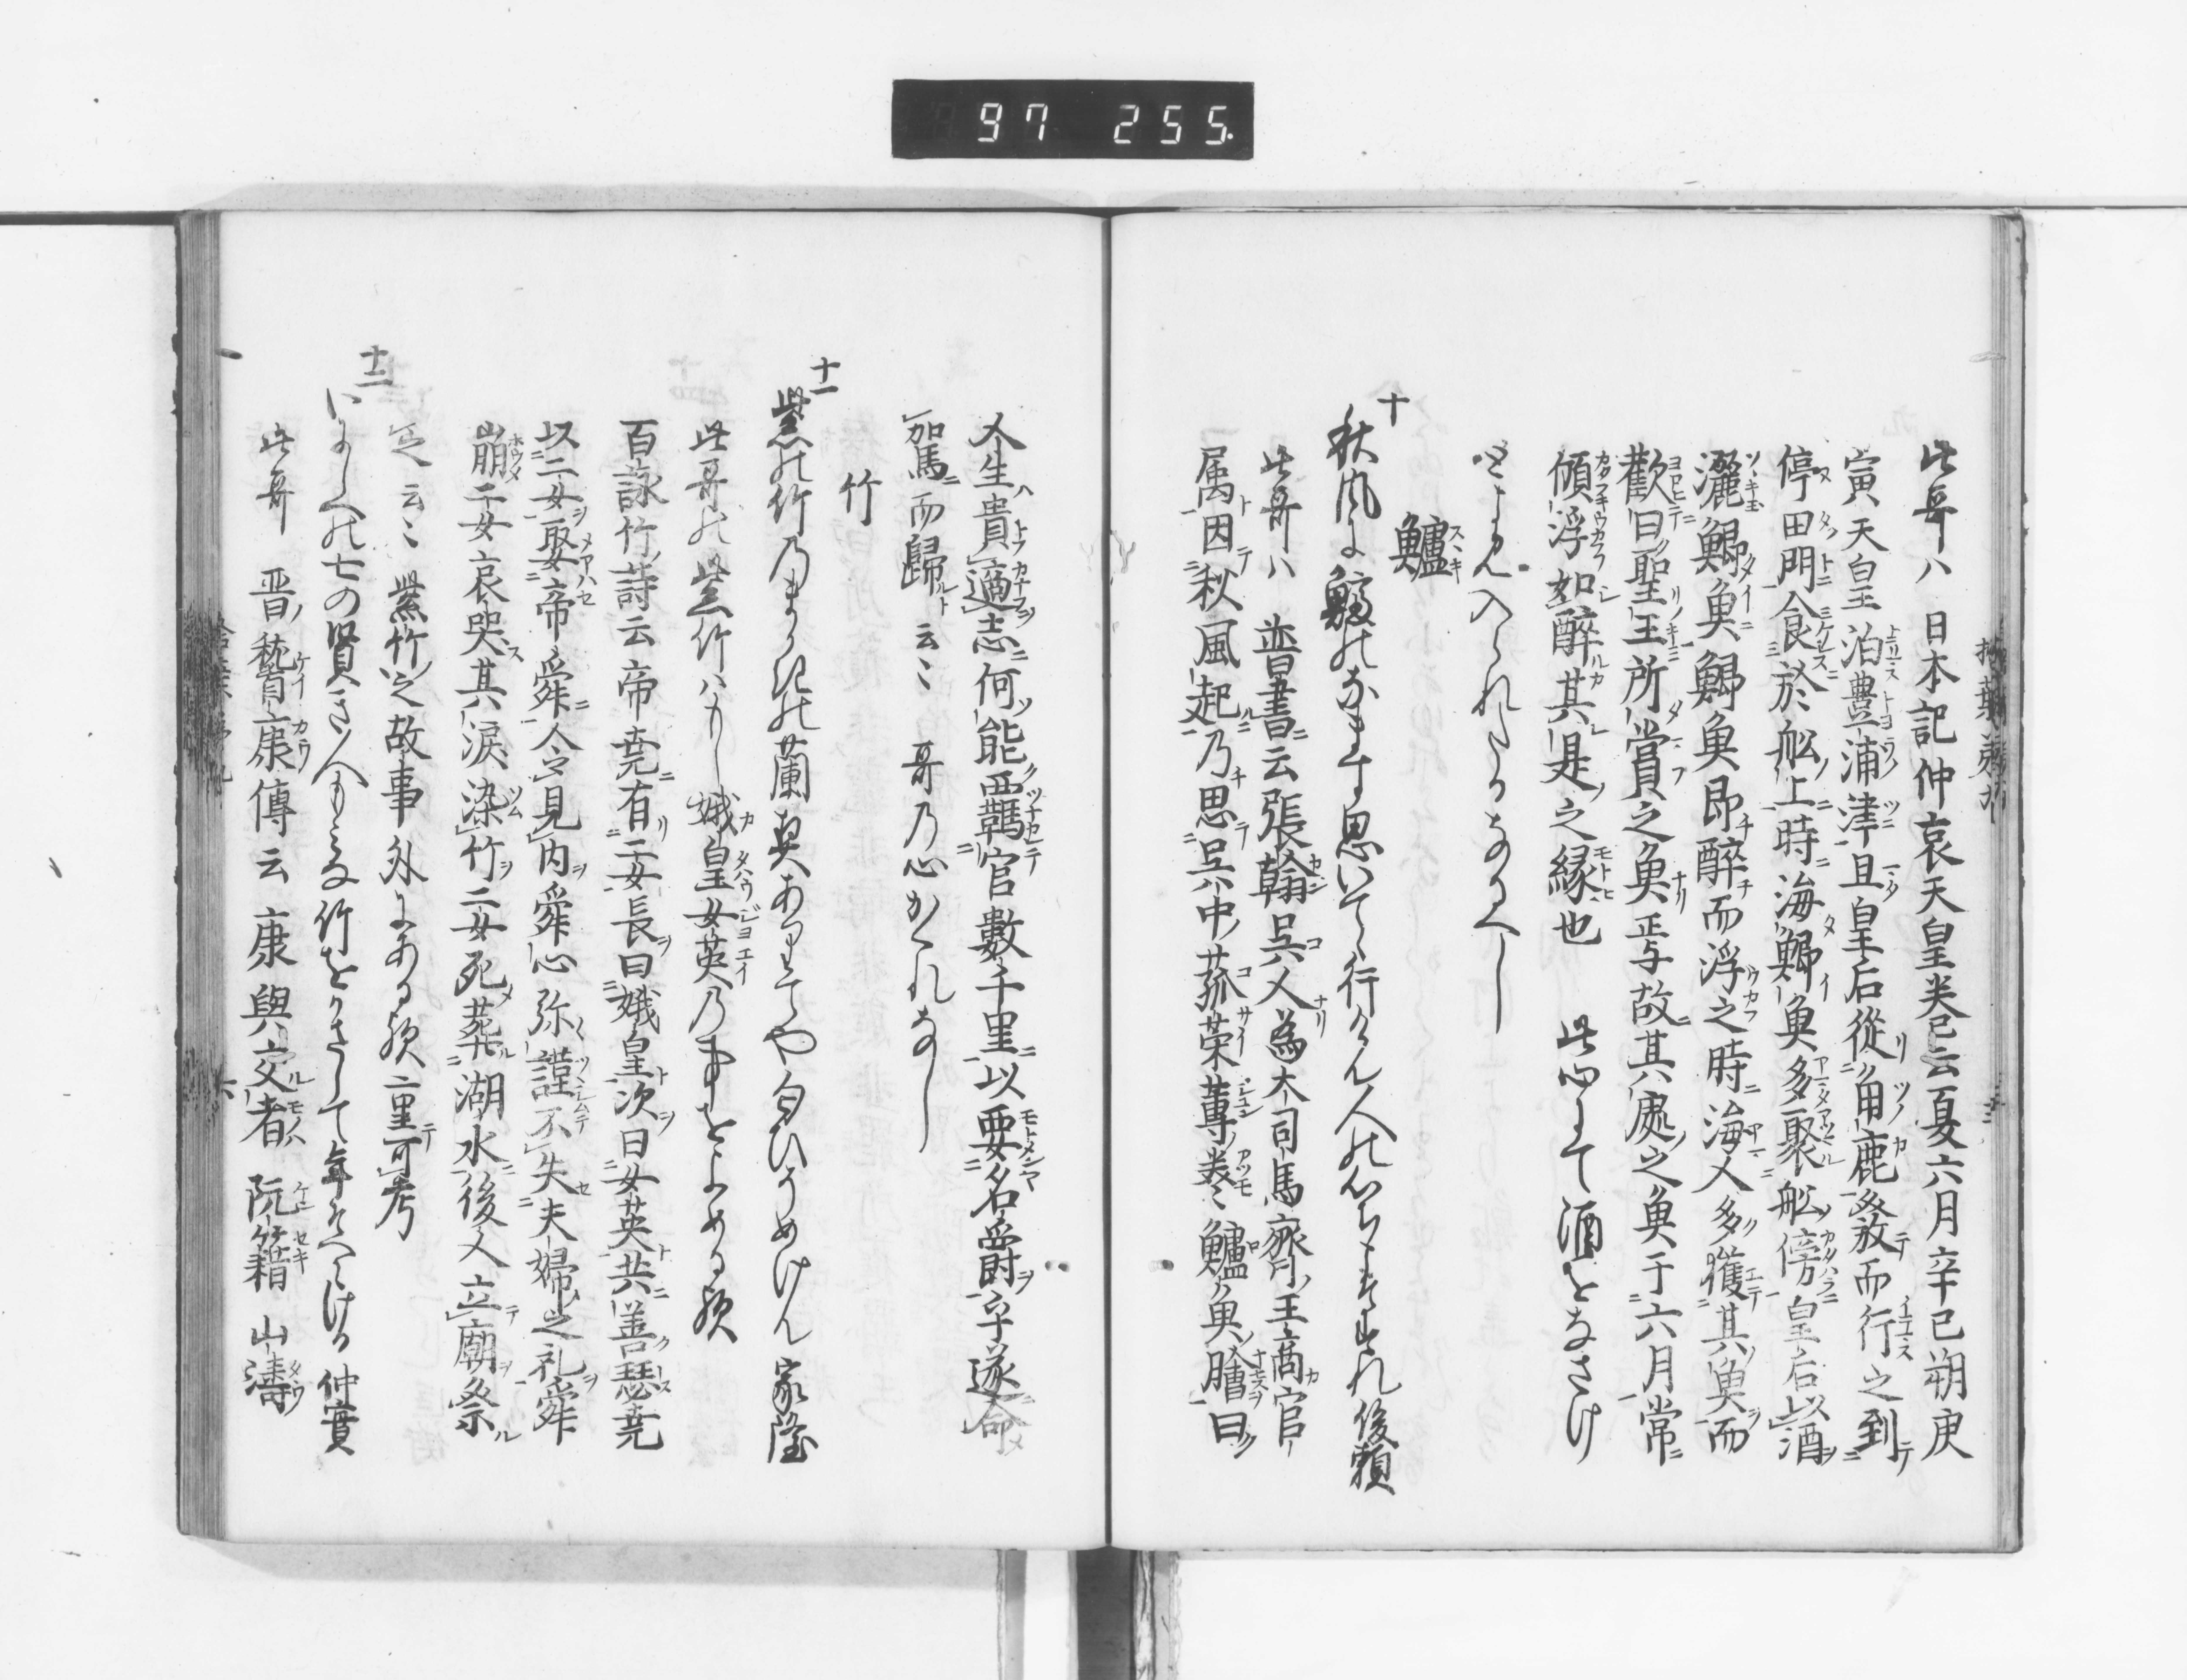 97 255
此哥ハ 日本記仲哀天皇巻云夏六月辛巳朔庚
寅天皇泊豊浦津且皇后從角鹿發而行之到
停田門食於舩上時海鯽魚多聚舩傍皇后以酒
灑鯽魚鯽魚即醉而浮之時海人多獲其魚而
歡曰聖王所賞之魚故其處之魚于六月常
傾浮如醉其是之縁也 此心にて酒をなさけ
とよみ入られたるなるへし
鱸
十
秋風に鱸のなます思いてゝ行けん人の心ちこそすれ 俊頼
此哥ハ 晋書云張翰呉人為大司馬齊王官
属因秋風起乃思呉中菰菜蓴羹鱸魚膾曰
人生貴適志何能羈官數千里以要名爵卒遂命
駕而歸云〻 哥乃心かくれなし
竹
十一
紫の竹乃まかきの蘭契ありてや匂ひそめけん 家隆
此哥の紫竹ハもし娥皇女英乃事をよめる欤
百詠竹詩云帝堯有二女長曰娥皇次曰女英共善瑟堯
以二女娶帝舜人令見内舜心弥謹不失夫婦之礼舜
崩二女哀哭其涙染竹二女死葬湖水後人立廟祭
之云〻 紫竹之故事外にある欤 重可考
十二
いにしへの七の賢き人もみな竹をかさして年そへける 仲實
此哥 晋嵆康傳云康與交者阮籍山濤